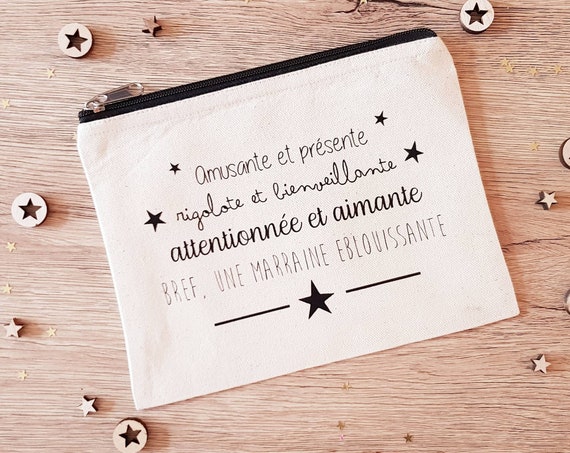 Amusante et présente
rigolote et bienveillante
attentionnée et aimante
BREF, UNE MARRAINE EBLOUISSANTE